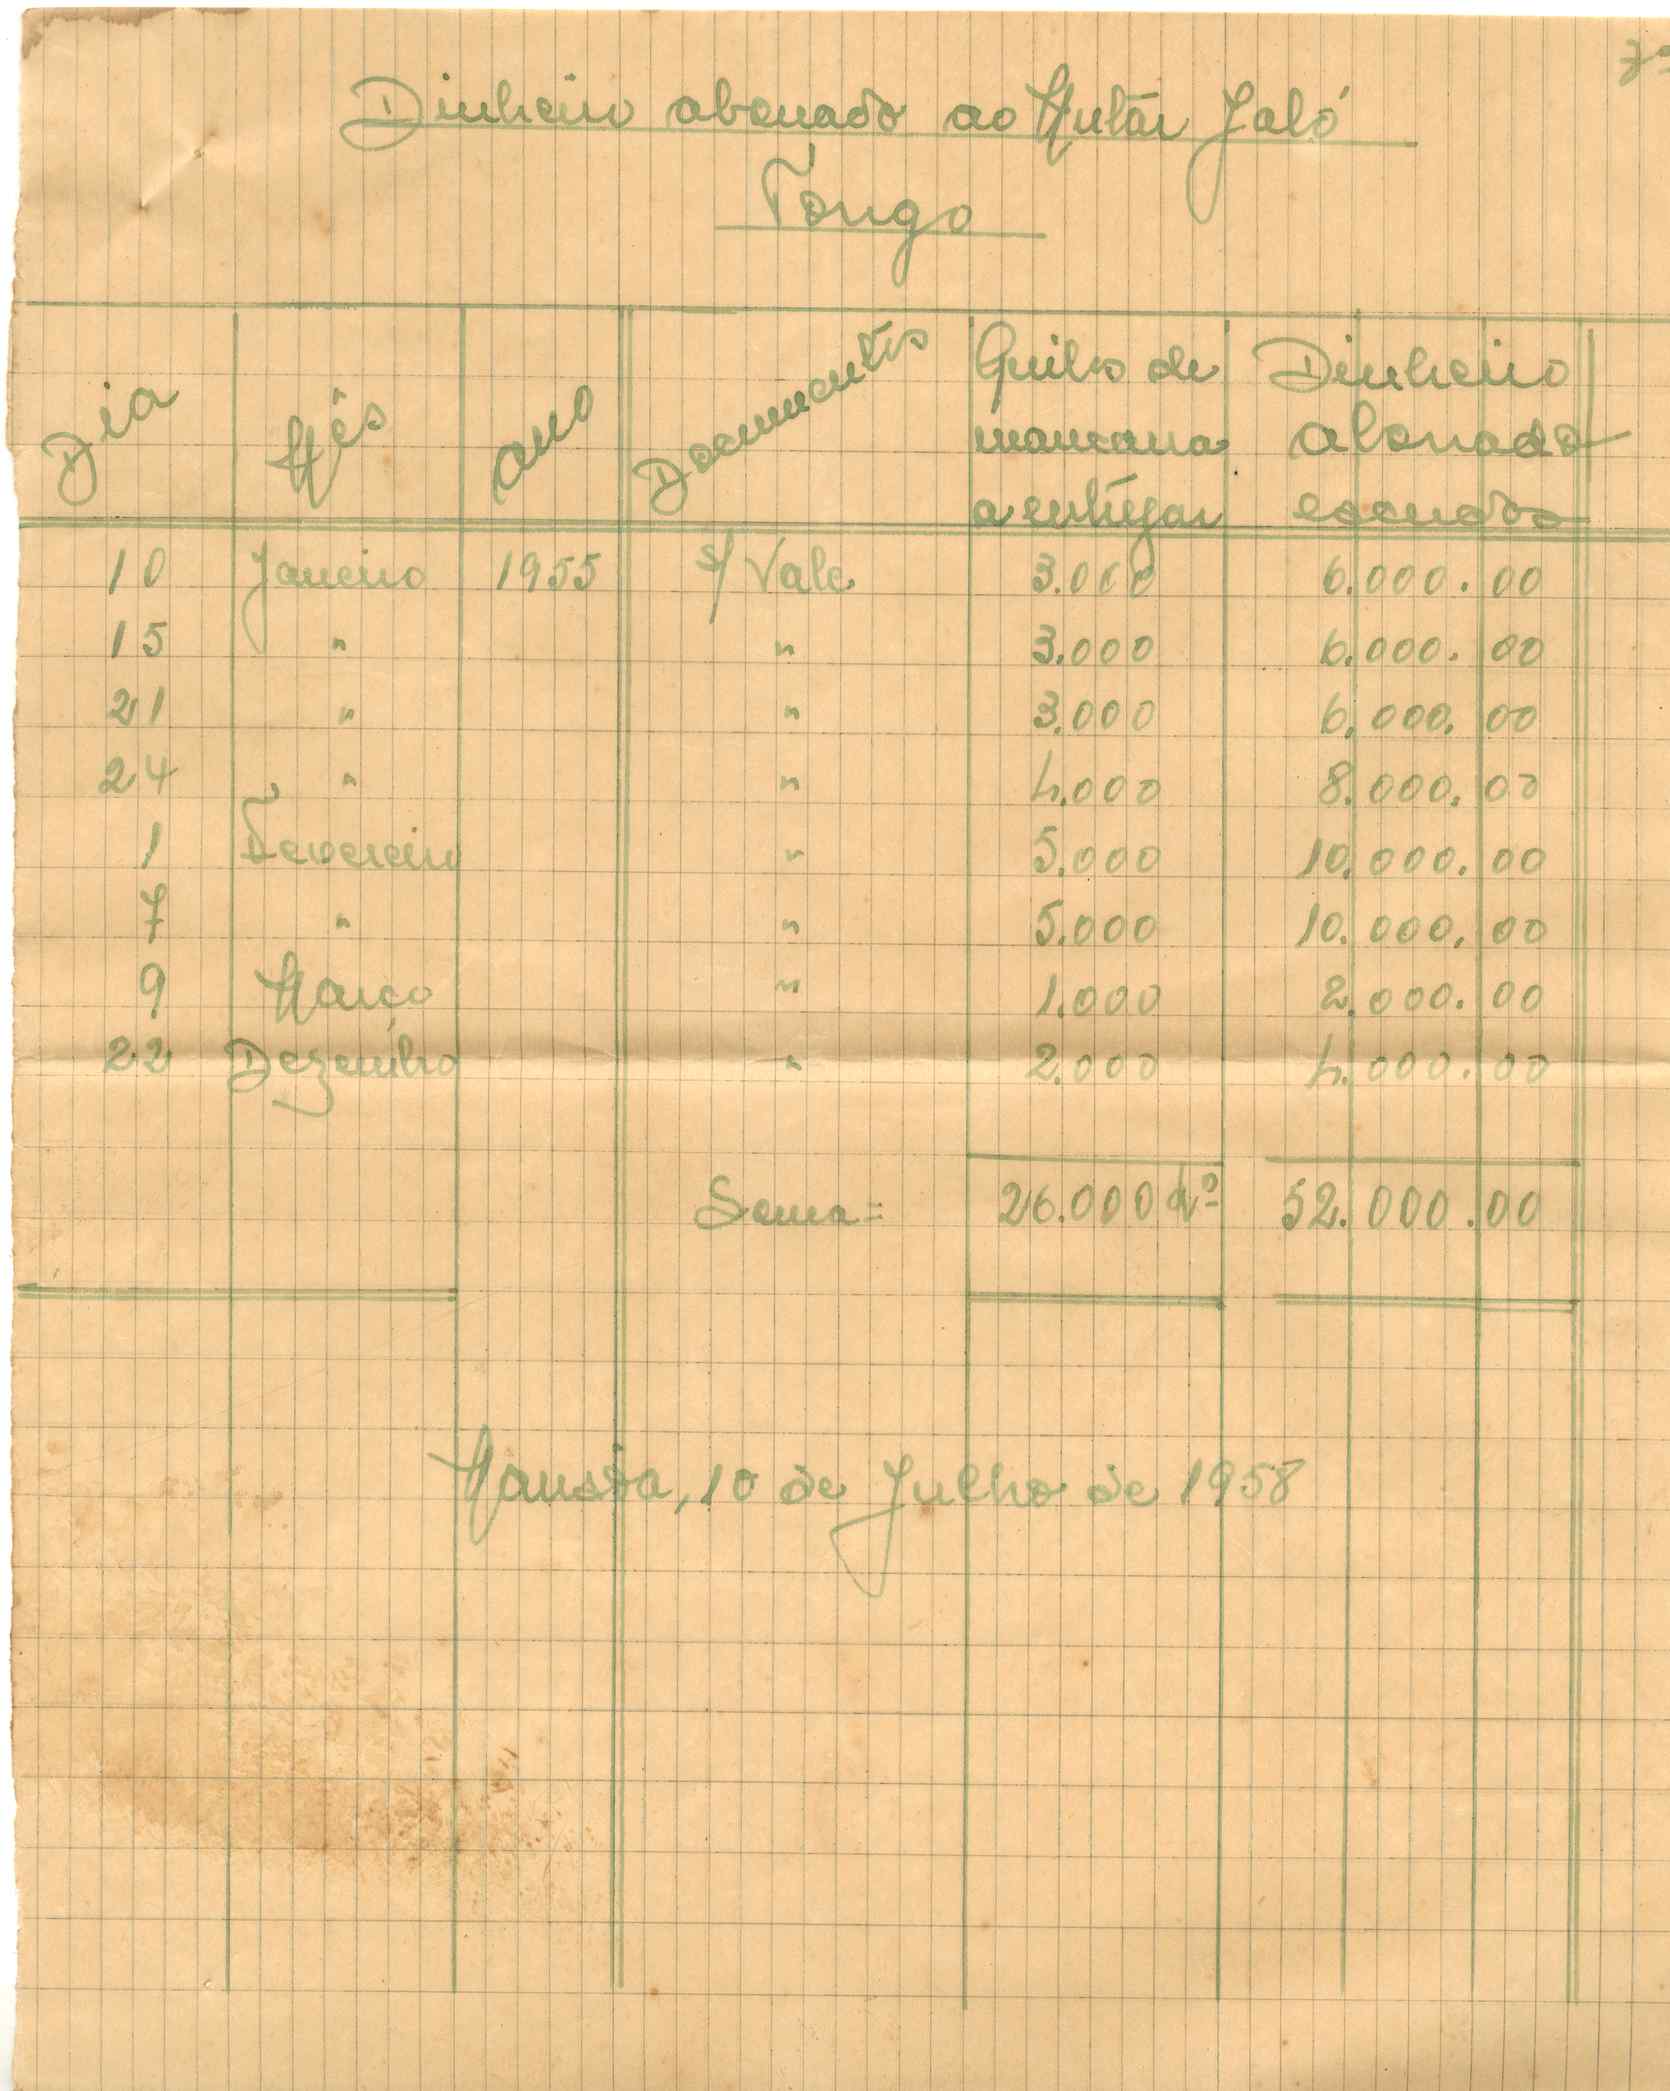 Dinheiro abonado ao Mutár Jaló
Tongo
Dia Mês Ano Documentos Quilos de mancarra a entregar Dinheiro abonado escudos
10 Janeiro 1955 s/ Vale 3.000 6.000.00
15 " " 3.000 6.000.00
21 " " 3.000 6.000.00
24 " " 4.000 8.000.00
1 Fevereiro " 5.000 10.000.00
7 " " 5.000 10.000.00
9 Março " 1.000 2.000.00
22 Dezembro " 2.000 4.000.00
Soma= 26.000 52.000.00
Mansôa, 10 de Julho de 1958